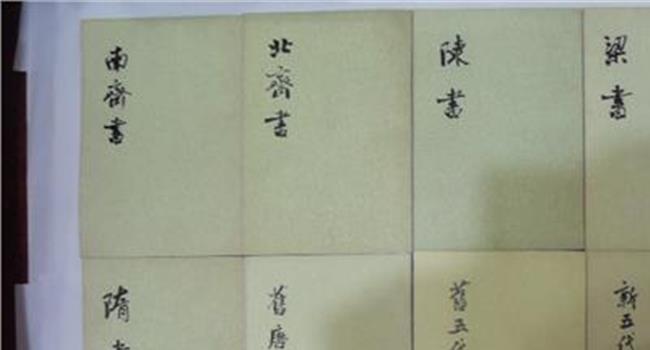 南齊書
北齊書
陳書
梁書
隋
舊唐
舊五
新五代